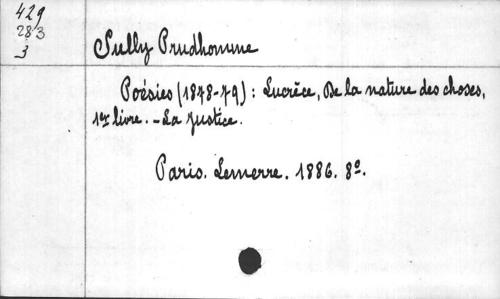 429
283
3
Sully Prudhomme
Poésies (1878-79) : Lucrèce, De la nature des choses,
1er livre. - La Justice.
Paris. Lemerre. 1886. 8º.